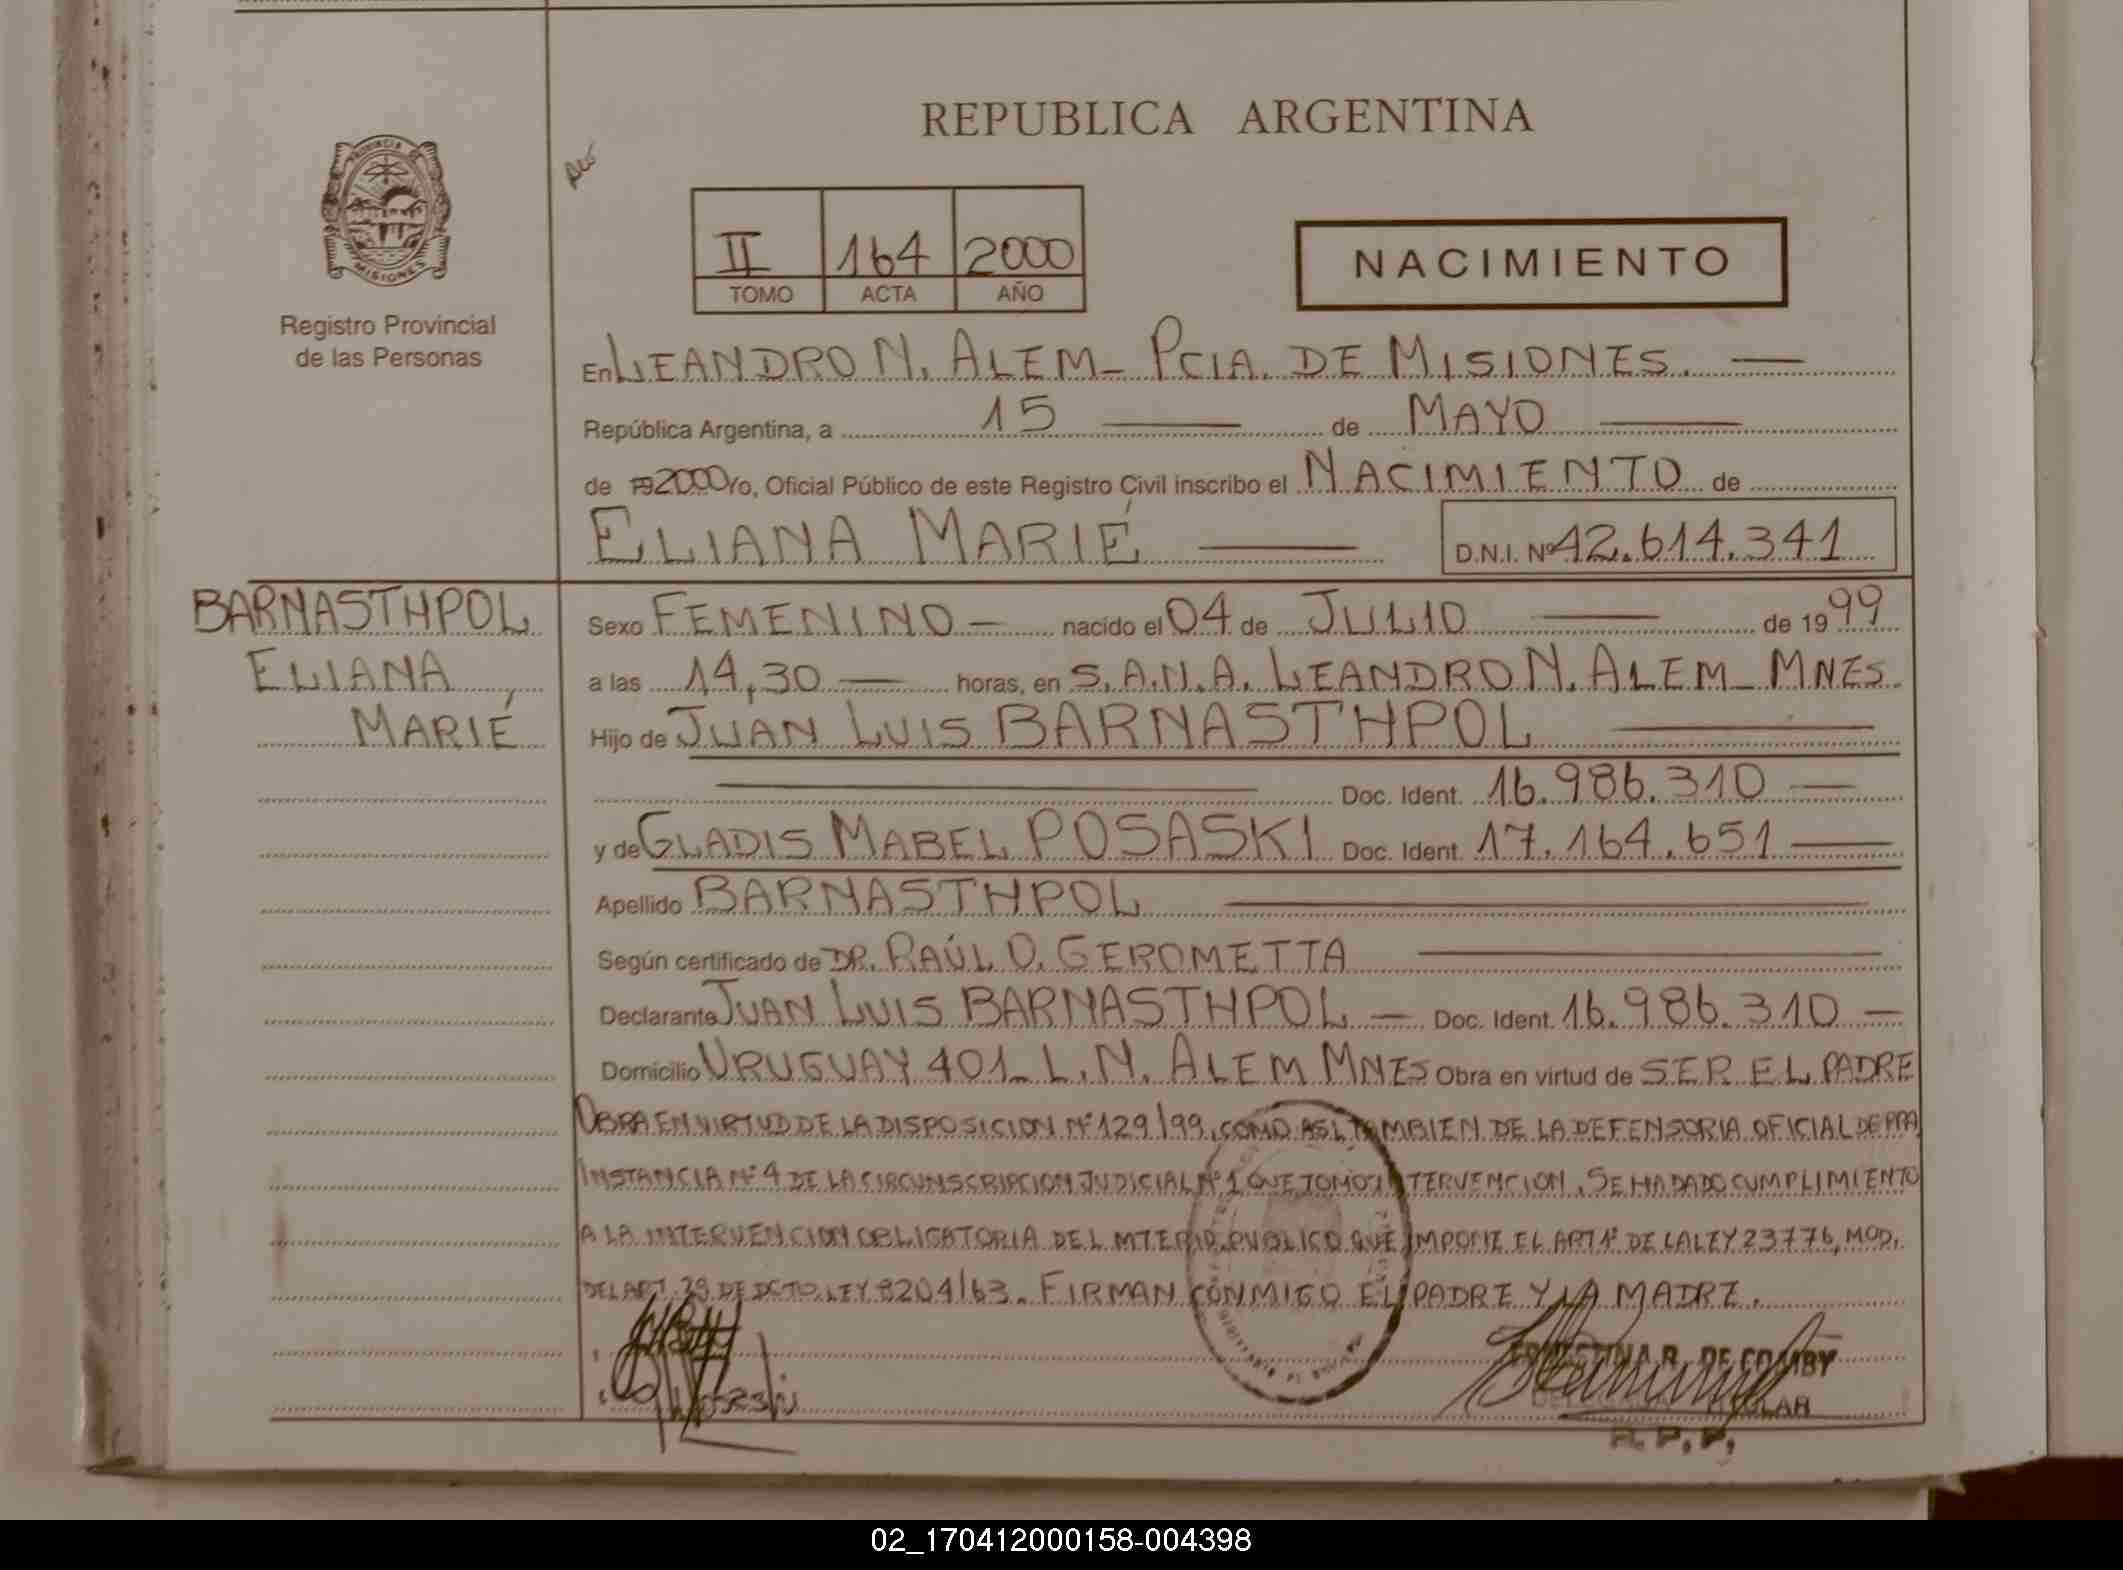 REPUBLICA ARGENTINA
PROVINCIA DE
MISIONES
Registro Provincial
de las Personas
II 164 2000
TOMO ACTA AÑO
NACIMIENTO
En LEANDRO N. ALEM_ PCIA. DE MISIONES. —
República Argentina, a 15 — de MAYO —
de 192000 Yo, Oficial Público de este Registro Civil inscribo el NACIMIENTO de
ELIANA MARIÉ — D.N.I. Nº 42.614.341
BARNASTHPOL
ELIANA
MARIÉ
Sexo FEMENINO — nacido el 04 de JULIO — de 1999
a las 14,30 — horas, en S.A.N.A. LEANDRO N. ALEM_ MNES.
Hijo de JUAN LUIS BARNASTHPOL —
— Doc. Ident. 16.986.310 —
y de GLADIS MABEL POSASKI Doc. Ident. 17.164.651 —
Apellido BARNASTHPOL —
Según certificado de DR. RAÚL O. GEROMETTA —
Declarante JUAN LUIS BARNASTHPOL — Doc. Ident. 16.986.310 —
Domicilio URUGUAY 401_ L.N. ALEM MNES Obra en virtud de SER EL PADRE
OBRA EN VIRTUD DE LA DISPOSICION Nº 129/99, COMO ASI TAMBIEN DE LA DEFENSORIA OFICIAL DE PRA
INSTANCIA Nº 4 DE LA CIRCUNSCRIPCION JUDICIAL Nº 1 QUE TOMO INTERVENCION. SE HA DADO CUMPLIMIENTO
A LA INTERVENCION OBLIGATORIA DEL MTERIO. PUBLICO QUE IMPONE EL ART 1º DE LA LEY 23776, MOD.
DEL ART. 29 DE DCTO. LEY 8204/63. FIRMAN CONMIGO EL PADRE Y LA MADRE.
ERNESTINA R. DE
TITULAR
R. P. P.
02_170412000158-004398